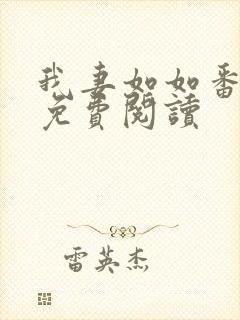 我妻如如番
免費閱讀
雷英杰